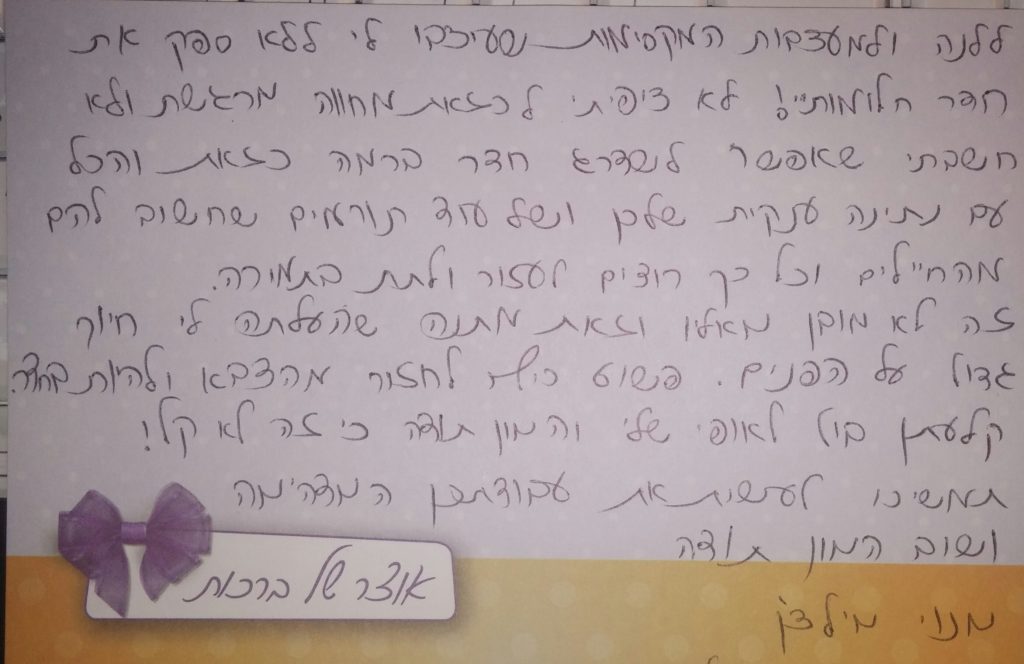 ללנה ולמעצבות המקסימות שעיצבו לי ללא ספק את
חדר חלומותיי! לא ציפיתי לכזאת מחווה מרגשת ולא
חשבתי שאפשר לשדרג חדר ברמה כזאת והכל
עם נתינה ענקית שלכן ושל עוד תורמים שחשוב להם
מהחיילים וכל כך רוצים לעזור ולתת בתמורה.
זה לא מובן מאליו וזאת מתנה שהעלתה לי חיוך
גדול על הפנים. פשוט כיף לחזור מהצבא ולהיות בחדר.
קלעתן בול לאופי שלי והמון תודה כי זה לא קל!
תמשיכו לעשות את עבודתכן המדהימה
ושוב המון תודה
אוצר של ברכות